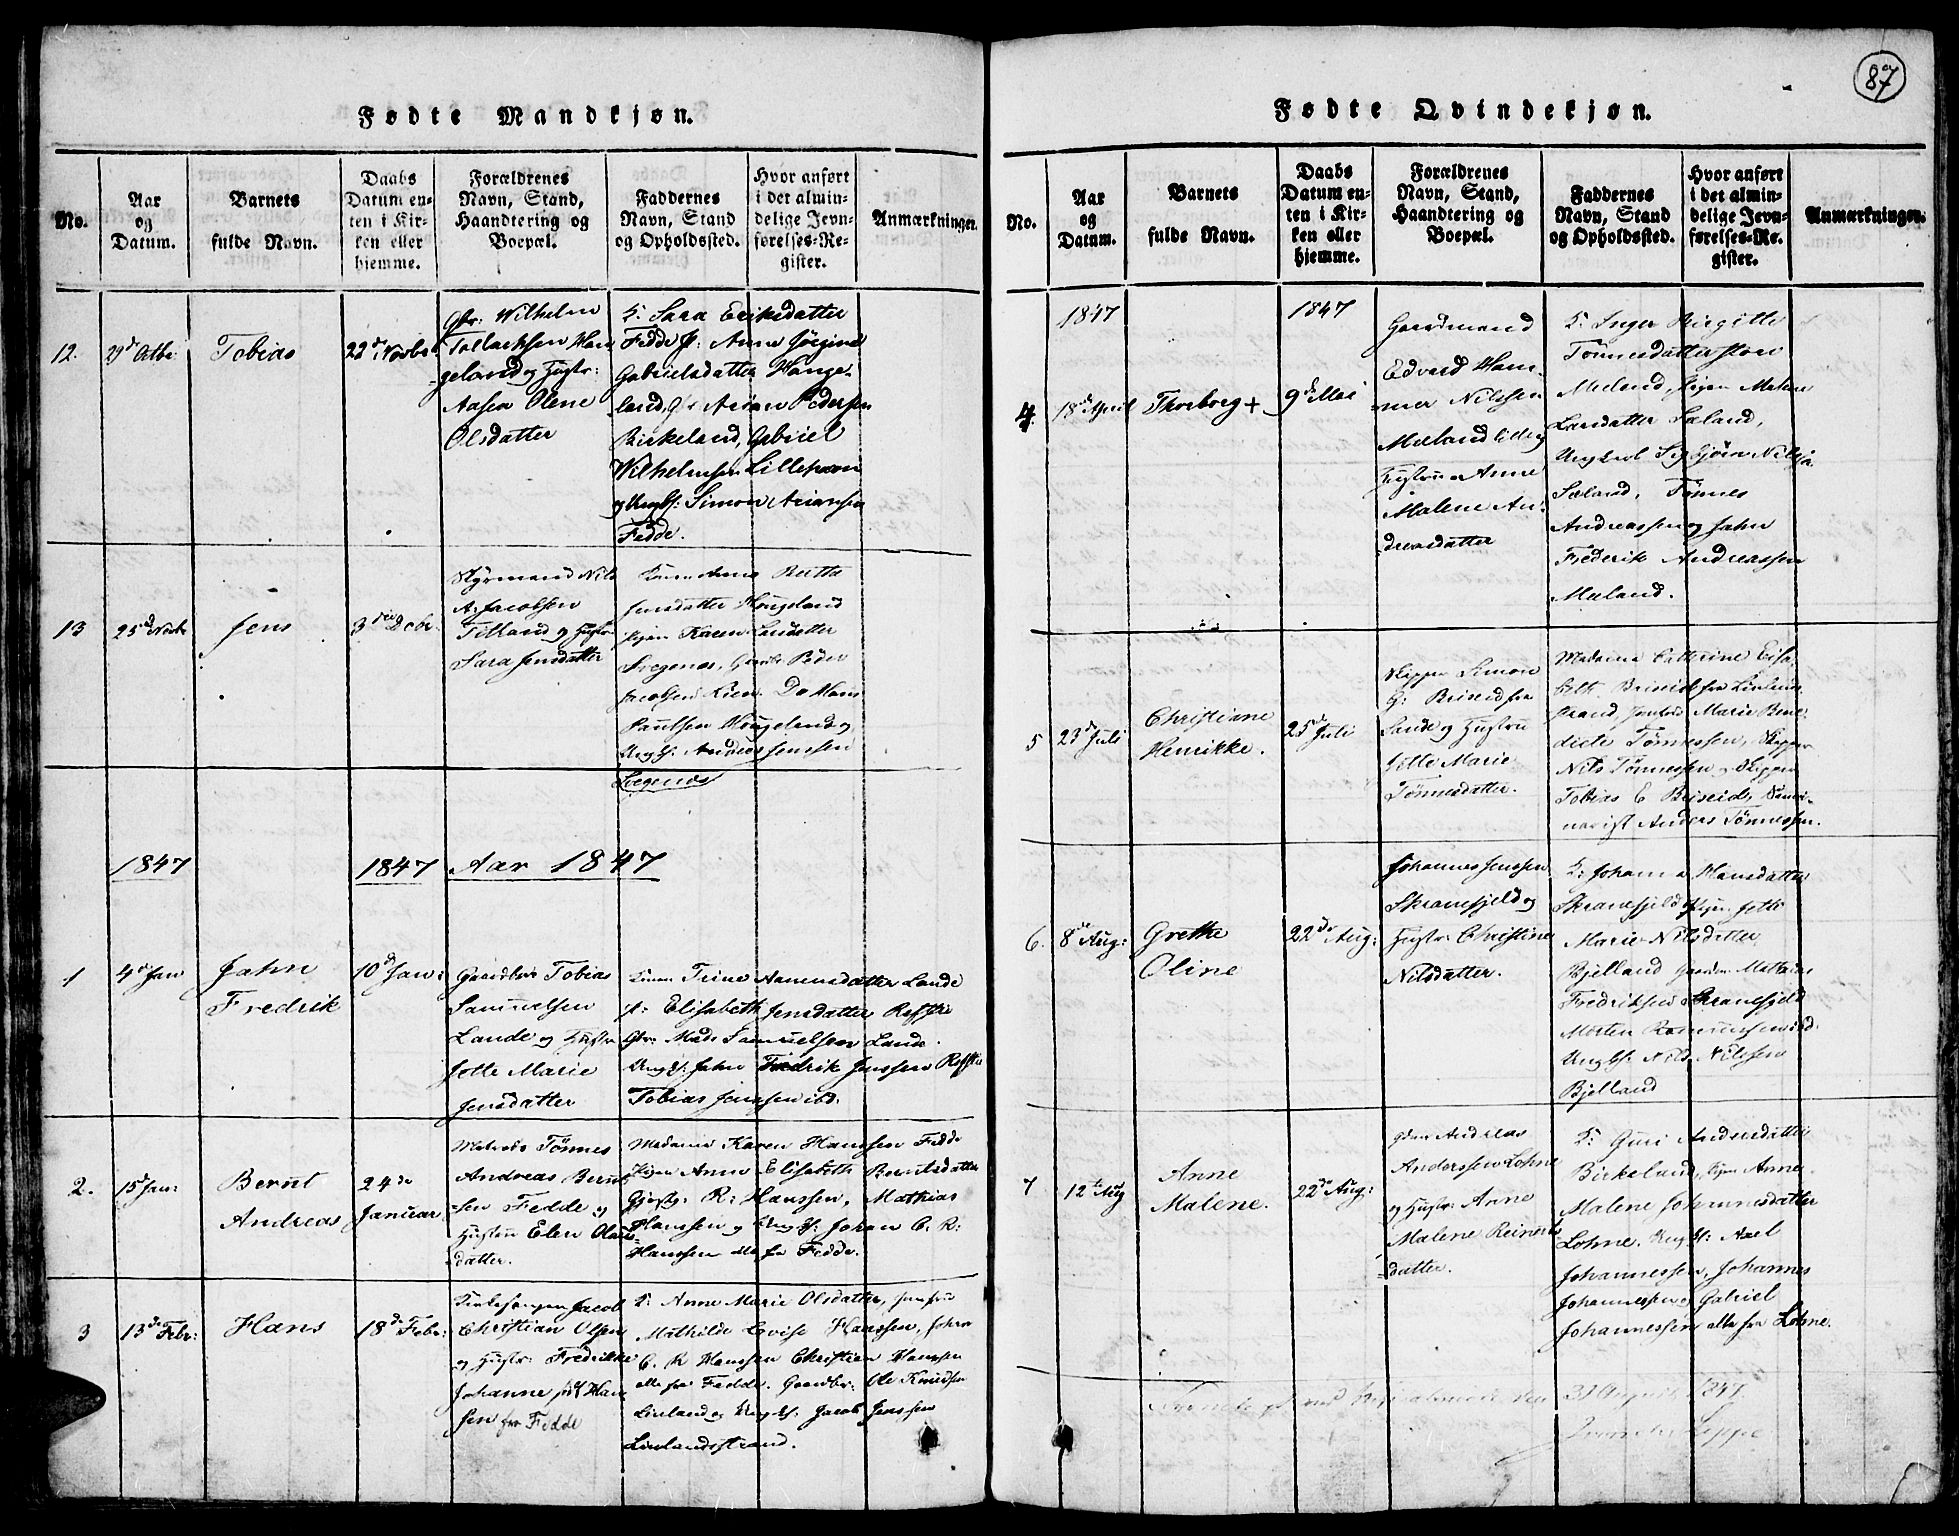 87
Fødte Mandkjøn.
No.
Aar
og
Datum.
Barnets
fulde Navn.
Daabs
Datum en-
ten i Kir-
ken eller
hjemme.
Forældrenes
Navn, Stand,
Haandtering og
Boepæl.
Faddernes
Navn, Stand
og Opholdssted.
Hvor anført
i det almin-
delige Jevn-
førelses-Re-
gister.
Anmærkninger.
12.
29d Octbr
Tobias
22d Novbr
Gbr: Wilhelm
Tollacksen Han
geland og Hustr:
Aasen Olene
Olsdatter
K: Sara Eriksdatter
Fedde p: Anne Jørgine
Gabrielsdatter Hange-
land, Gbr Arian Pedersen
Birkeland, Gabriel
Wilhelmsen
og Ungk: Simon Ariansen
Fedde.
13
25d Novbr
Jens
3die Decbr.
Styrmand Nils
A: Jacobsen
Tilland og Hustr
Sara Jensdatter
Anne Birtte
Jensdatter Hougeland
Pigen Karen Larsdatter
Svegenæs, Peder
Jacobsen Do Hans
Paulsen Hougeland og
Ungk: Anders Jenssen
Svegenæs
1847
1847
Aar 1847
1
4d Jan
Jahn
Fredrik
10d Jan:
Gaardbr Tobias
Samuelsen
Lande og Hustr
Jette Marie
Jensdatter
Trine Aanensdatter Lande
p: Elisabeth Jensdatter Røffie
Gbr: Mads Samuelsen Lande.
Ungk: Jahn Fredrik Jenssen
Tobias Jenssen ibd:
2.
15d Jan:
Bernt
Andreas
24de
Januar
Matros Tönnes
Andreas Bernt
sen Fedde og
Hustru Elen Olaus
datter.
Madame Karen Hanssen Fedde
Pigen Anne Elisabeth Berntsdatter
R: Hanssen, Mathias
Hanssen og Ungk: Johan C. R:
Hanssen alle fra Fedde.
3
13de Febr:
Hans
18de Febr:
Jacob
Christian Olsen
og Hustr: Fredrikke
Johanne født Han
sen fra Fedde
K: Anne Marie Olsdatter, Jomfru
Mathilde Lovise Hanssen, Johan
C. R Hanssen Christian Hanssen
alle fra Fedde. Gaardbr: Ole Knudsen
Linland og Ungk: Jacob Jenssen
Linlandsstrand.
Fødte Qvindekjøn.
No.
Aar
og
Datum.
Barnets
fulde Navn.
Daabs
Datum en-
ten i Kir-
ken eller
hjemme.
Forældrenes
Navn, Stand,
Haandtering og
Boepæl.
Faddernes
Navn, Stand
og Opholdssted.
Hvor anført
i det almin-
delige Jevn-
førelses-Re-
gister.
Anmærkninger.
1847
1847
4.
18de April
Thorborg +
9de Mai
Gaardmand
Edvard Ham-
mer Nilssen
Mæland lille og
Hustrue Anne
Malene An-
dreasdatter
K: Inger Birgitte
Tönnesdatter store
Mæland, Pigen Malene
Larsdatter Sæland,
Ungkarl Sigbjørn Nilssen
Sæland, Tönnes
Andreassen og Jahn
Frederik Andreassen
Mæland.
5
23de Juli
Christiane
Henrikke.
25de Juli
Skipper Simon
G: Briseid fra
Sande og Hustru
Gitte Marie
Tönnesdatter.
Madame Cathrine Elisa
beth Briseid fra Linlands
strand, Jomfru Marie Bene-
dicte Tönnessen, Skipper
Nils Tönnessen og Skipper
Tobias E Briseid,
Anders Tönnessen.
6.
8de Aug:
Grethe
Oline
22de Aug:
Johannes Jenssen
Skranefjeld og
Hustr: Christine
Nilsdatter.
K: Johanne Hansdatter
Skranefjeld Pigen Jette
Marie Nilsdatter
Bjelland Mathias
Fredriksen Skranefjeld
Morten Rasmussen ibd:
Ungk: Nils Nilssen
Bjelland
7
12te Aug
Anne
Malene.
22de Aug:
Gbr Andreas
Anderssen Lohne
og Hustr: Anne
Malene Reinerts
datter.
K: Guri Andersdatter
Birkeland, Pigen Anne
Malene Johannesdatter
Lohne. Ungk: Axel
Johannessen, Johannes
Johannessen og Gabriel
Johannessen alle fra Lohne.
31 August 1847